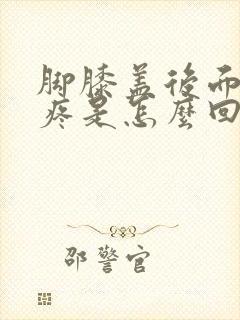 脚膝盖后而
疼是怎麼回
邵警官